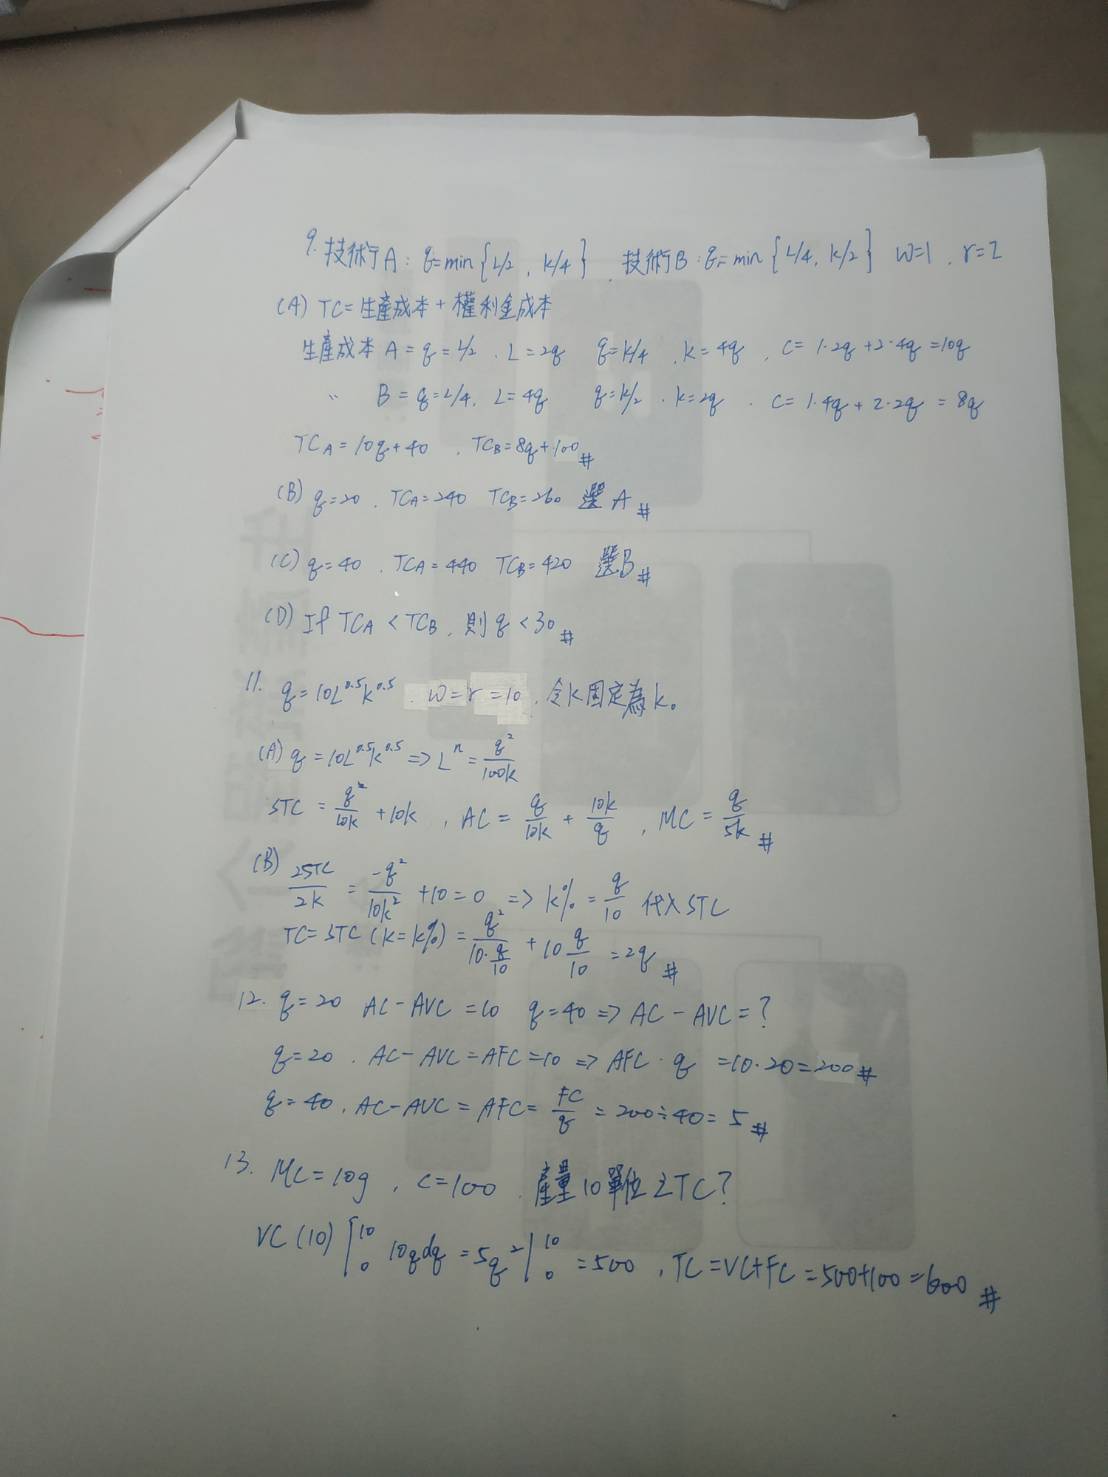 9. 技術A : q=min{L/2 , k/4} , 技術B : q=min{L/4, k/2} w=1 , r=2
(A) TC=生產成本+權利金成本
生產成本 A = q = L/2 , L=2q q=k/4 , k=4q , C=1·2q+2·4q=10q
〃 B = q=L/4, L=4q q=k/2 , k=2q , C=1·4q+2·2q=8q
TCA=10q+40 , TCB=8q+100 #
(B) q=20 , TCA=240 TCB=260 選A #
(C) q=40 , TCA=440 TCB=420 選B #
(D) If TCA<TCB , 則q<30 #
11. q=10L^0.5k^0.5 , w=r=10 , 令k固定為k。
(A) q=10L^0.5k^0.5 => L^n = q²/100k
STC = q²/10k +10k , AC = q/10k + 10k/q , MC = q/5k #
(B) 2STC/2k = -q²/10k² +10=0 => k% = q/10 代入STC
TC=STC (k=k%) = q²/10·q/10 + 10 q/10 =2q #
12. q=20 AC-AVC=10 q=40 => AC-AVC=?
q=20 , AC-AVC=AFC=10 => AFC·q =10·20=200 #
q=40 , AC-AVC=AFC= FC/q = 200÷40=5 #
13. MC=10q , C=100 , 產量10單位之TC?
VC(10) ∫₀¹⁰ 10qdq =5q²|₀¹⁰ =500 , TC=VC+FC=500+100=600 #